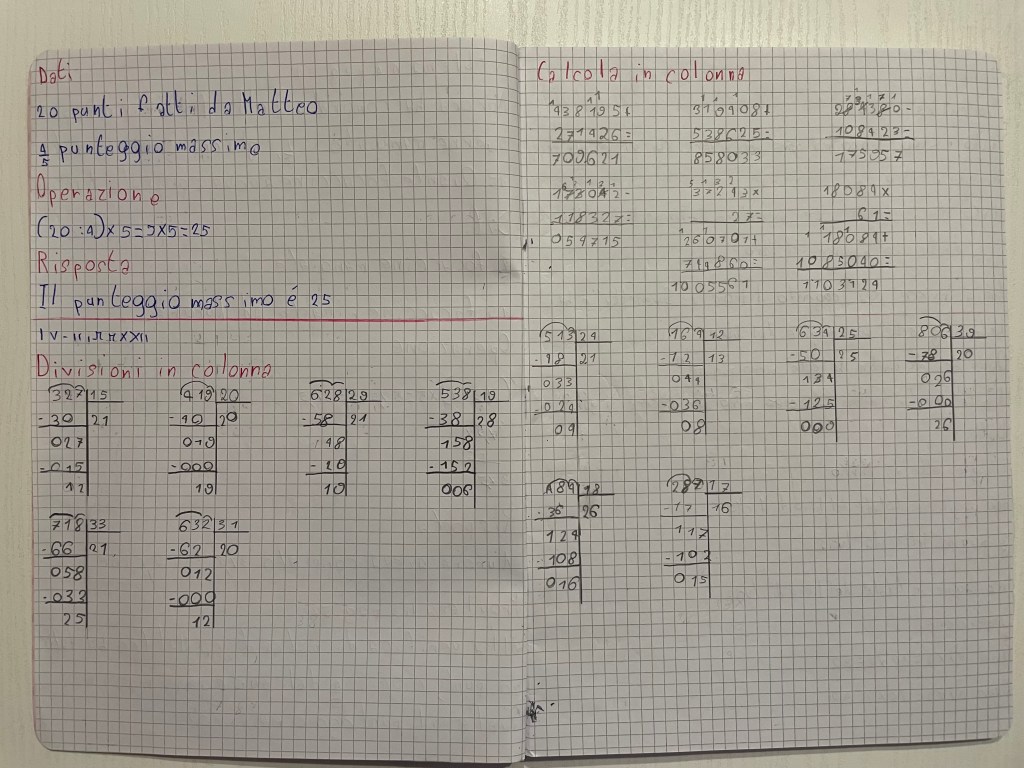 Dati
20 punti fatti da Matteo
4/5 punteggio massimo
Operazione
(20 :4)×5=5×5=25
Risposta
Il punteggio massimo é 25
Divisioni in colonna
327 15
-30 21
027
-015
12
419 20
-40 20
019
-000
19
628 29
-58 21
48
-29
19
538 19
-38 28
158
-152
006
718 33
-66 21
058
-033
25
632 31
-62 20
012
-000
12
Calcola in colonna
438195+
271426=
709621
319408+
538625=
858033
284380-
108423=
175957
178042-
118327=
059715
37243×
27=
260701+
744860=
1005561
18084×
61=
18084+
1085040=
1103124
513 24
-48 21
033
-024
09
164 12
-12 13
044
-036
08
634 25
-50 25
134
-125
000
806 39
-78 20
026
-000
26
484 18
-36 26
124
-108
016
287 17
-17 16
117
-102
015